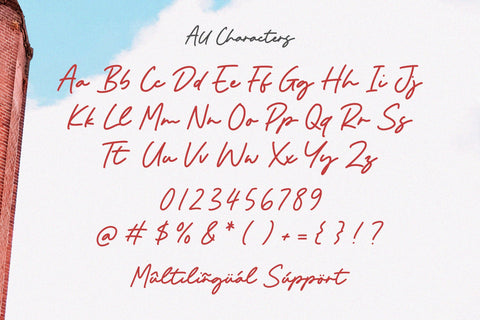 All Characters
Aa Bb Cc Dd Ee Ff Gg Hh Ii Jj
Kk Ll Mm Nn Oo Pp Qq Rr Ss
Tt Uu Vv Ww Xx Yy Zz
0123456789
@ # $ % & * ( ) + = { } ! ?
Mûltilïñgüál Súppört